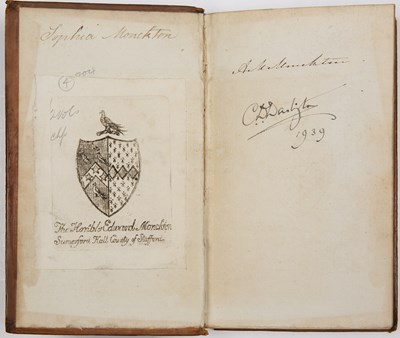 Sophia Monckton
The Honble. Edward Monckton
Somerford Hall County of Stafford.
A M Monckton
C D Darlington
1939